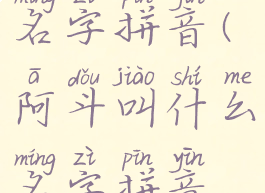 míng zì pīn yīn
名字拼音(
ā dǒu jiào shí me
阿斗叫什么
míng zì pīn yīn
名字拼音